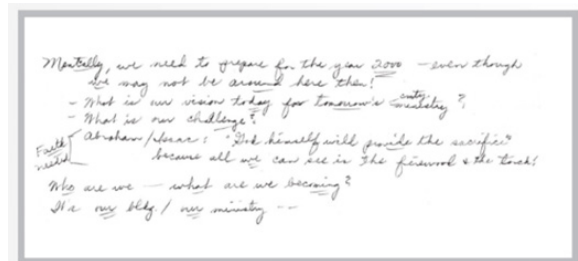 Mentally, we need to prepare for the year 2000 — even though
we may not be around here then!
- What is our vision today for tomorrow's cmty. ministry?
- What is our challenge?
Faith needed
Abraham/Isaac: "God himself will provide the sacrifice"
because all we can see is the firewood & the torch!
Who are we — what are we becoming?
It's our bldg. / our ministry --